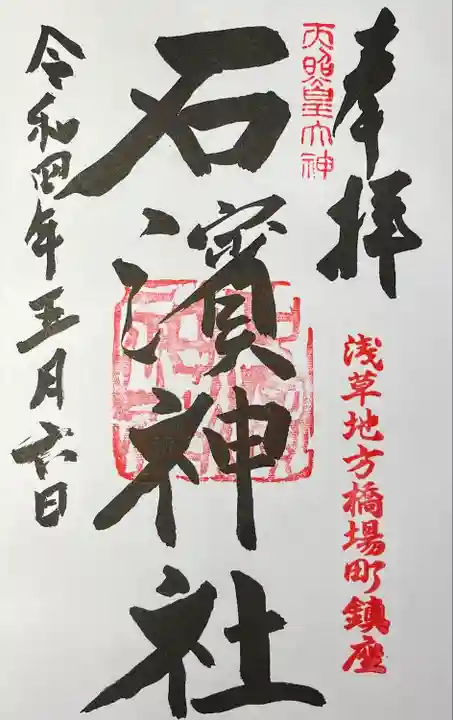 奉拝
天照皇大神
浅草地方橋場町鎮座
石濱神社
令和四年五月六日